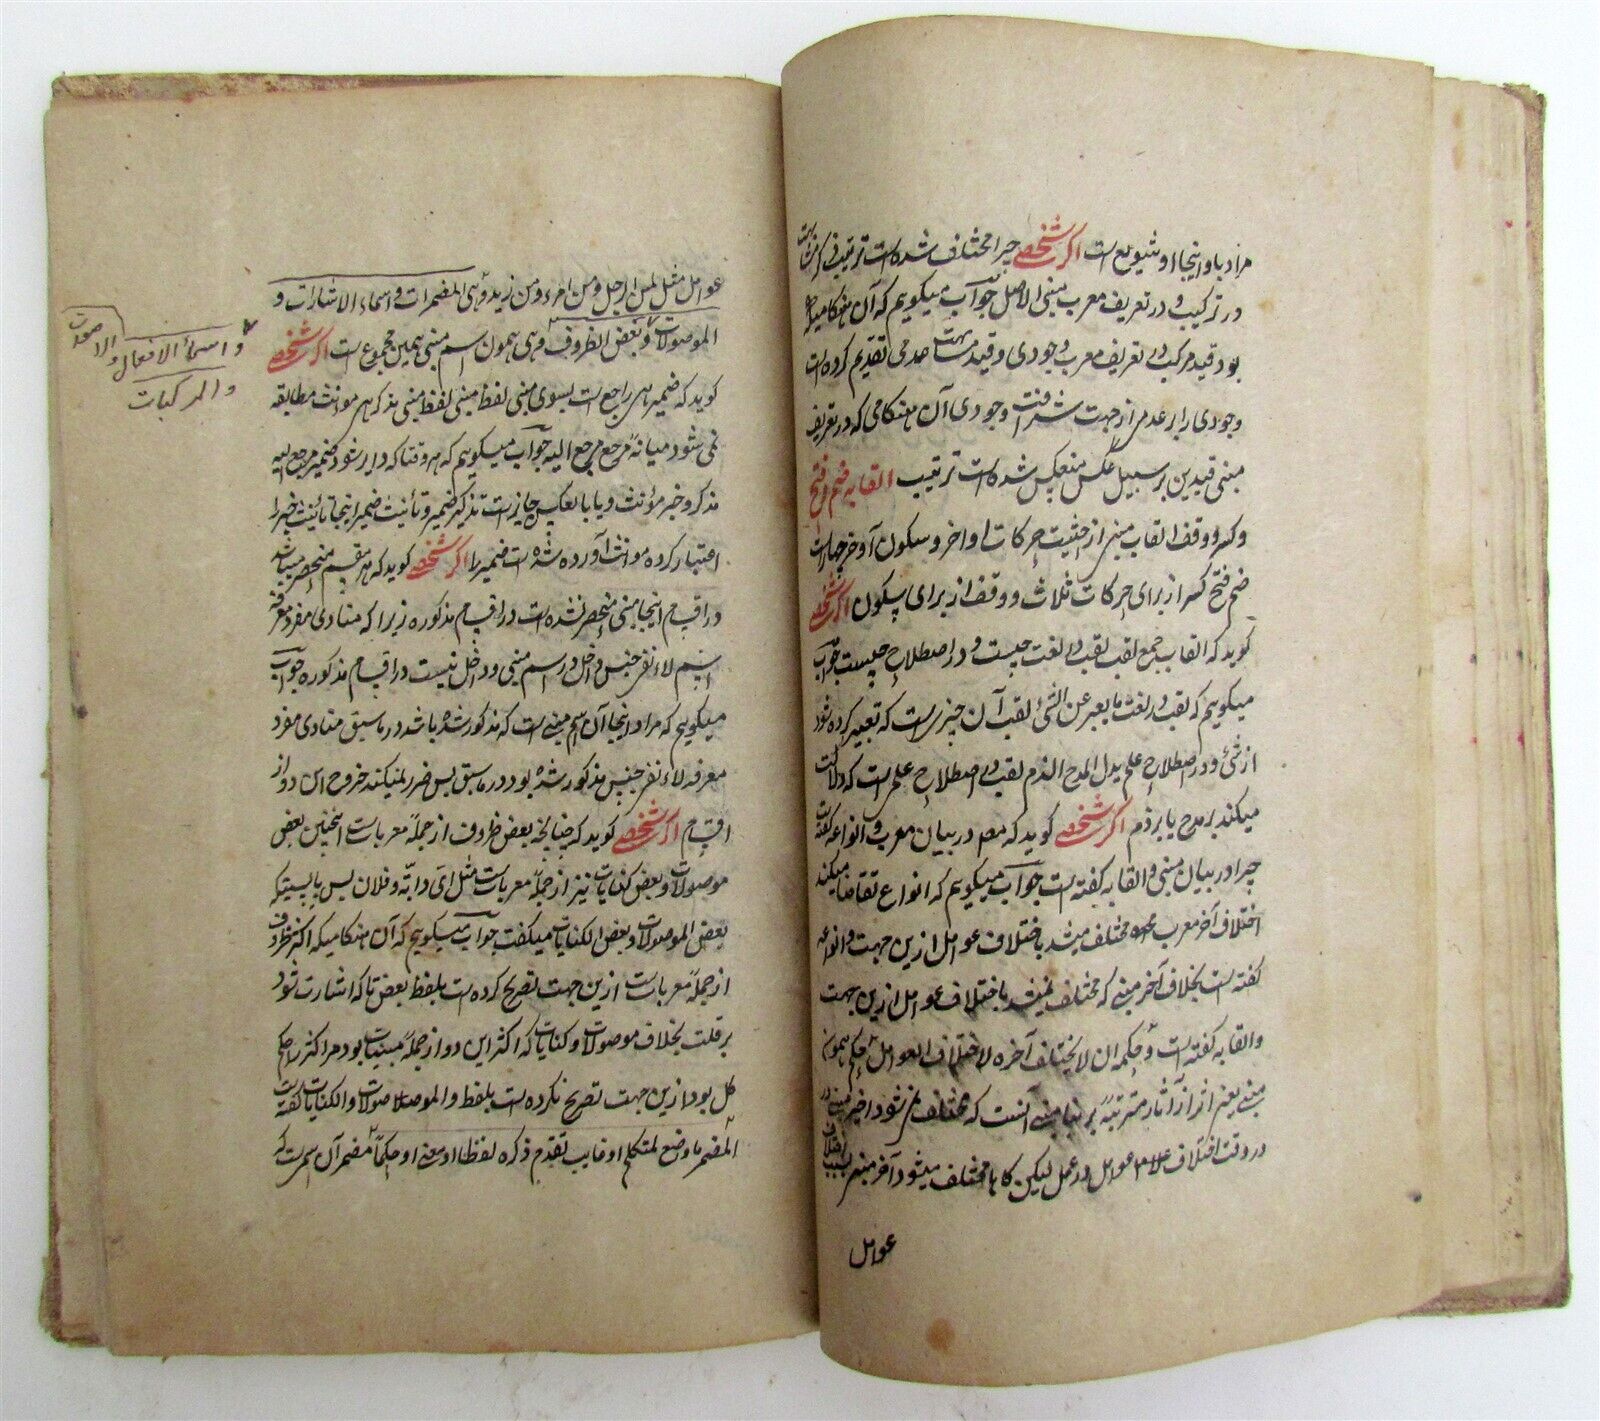 مراد باو اینجا او شیوع است اکر شخصی چرا مختلف شده است ترتیب
در ترکیب و در تعریف معرب مبنی الاصل جواب میکویم که آن هنکامیکه
بود قید مرکب در تعریف معرب وجودی و قید مشابهت عدمی تقدیم کرده است
وجودی را بر عدمی از جهت شرافت وجودی آن هنکامی که در تعریف
مبنی قیدین بر سبیل عکس منعکس شده است ترتیب القابه ضم و فتح
و کسر و وقف القاب مبنی از حیثیت حرکات اواخر و سکون آوخر چهار است
ضم فتح کسر از برای حرکات ثلاث و وقف از برای سکون اکر شخصی
کوید که القاب جمع لقب لقب در لغت چیست و در اصطلاح چیست جواب
میکویم که لقب در لغت ما یعبر عن الشئ لقب آن چیزیست که تعبیر کرده شود
از شئ و در اصطلاح علم یدل المدح الذم لقب در اصطلاح علمی است که دلالت
میکند بر مدح یا بر ذم اکر شخصی کوید که مص در بیان معرب و انواعه کفته است
چرا در بیان مبنی و القابه کفته است جواب میکویم که انواع تقاضا میکند
اختلاف آخر معرب مختلف میشد باختلاف عوامل ازین جهت و انواعه
کفته است بخلاف آخر مبنی که مختلف نمیشد باختلاف عوامل ازین جهت
و القابه کفته است و حکمه ان لا یختلف آخره لاختلاف العوامل حکم
مبنی یعنی اثر از آثار مترتبه بر بنا مبنی آنست که مختلف نمی شود اخر مبنی
در وقت اختلاف عوامل در عمل لیکن کاهی مختلف میشود آخر مبنی بسبب اختلاف
عوامل
عوامل مثل لمن الرجل و من امرء و من زید و هی المضمرات و اسماء الاشارات و
الموصولات و بعض الظروف و هی همون اسم مبنی همین مجموع است اکر شخصی
کوید که ضمیر هی راجع است بسوی مبنی لفظ مبنی لفظ مبنی مذکر هی مونث مطابقه
نمی شود میانهٔ مرجع مرجع الیه جواب میکویم که هر وقتا که دایر شود ضمیر مرجع الیه
مذکر و خبر مؤنث و یا بالعکس جایز است تذکیر ضمیر و تأنیث ضمیر اینجا تأنیث خبر را
اعتبار کرده مونث آورده شده است ضمیر را اکر شخصی کوید که هر مقسم منحصر میباشد
در اقسام اینجا مبنی منحصر نشده است در اقسام مذکوره زیرا که منادی مفرد معرفه
اسم لاء نفی جنس داخل در اسم مبنی و داخل نیست در اقسام مذکوره جواب
میکویم که مراد اینجا آن اسم مبنی است که مذکور نشده باشد در ماسبق منادی مفرد
معرفه لاء نفی جنس مذکور شده بود در ماسبق پس ضرر نمیکند خروج این دو از
اقسام اکر شخصی کوید که چنانچه بعض ظروف از جملهٔ معربات است همچنین بعض
موصولات و بعض کنایات نیز از جملهٔ معربات مثل ای و ایة و فلان پس بایستیکه
بعض الموصولات و بعض الکنایات میکفت جواب میکویم که آن هنکامیکه اکثر ظروف
از جملهٔ معربات است ازین جهت تصریح کرده است بلفظ بعض تا که اشارت شود
بر قلت بخلاف موصولات و کنایات که اکثر این دو از جملهٔ مبنیات بود مر اکثر را حکم
کل بود ازین جهت تصریح نکرده است بلفظ و الموصولات و الکنایات کفته است
المضمر ما وضع لمتکلم او غایب تقدم ذکره لفظا او معنی او حکماً مضمر آن اسمیست که
و اسماء الافعال و الاصوات
و المرکبات